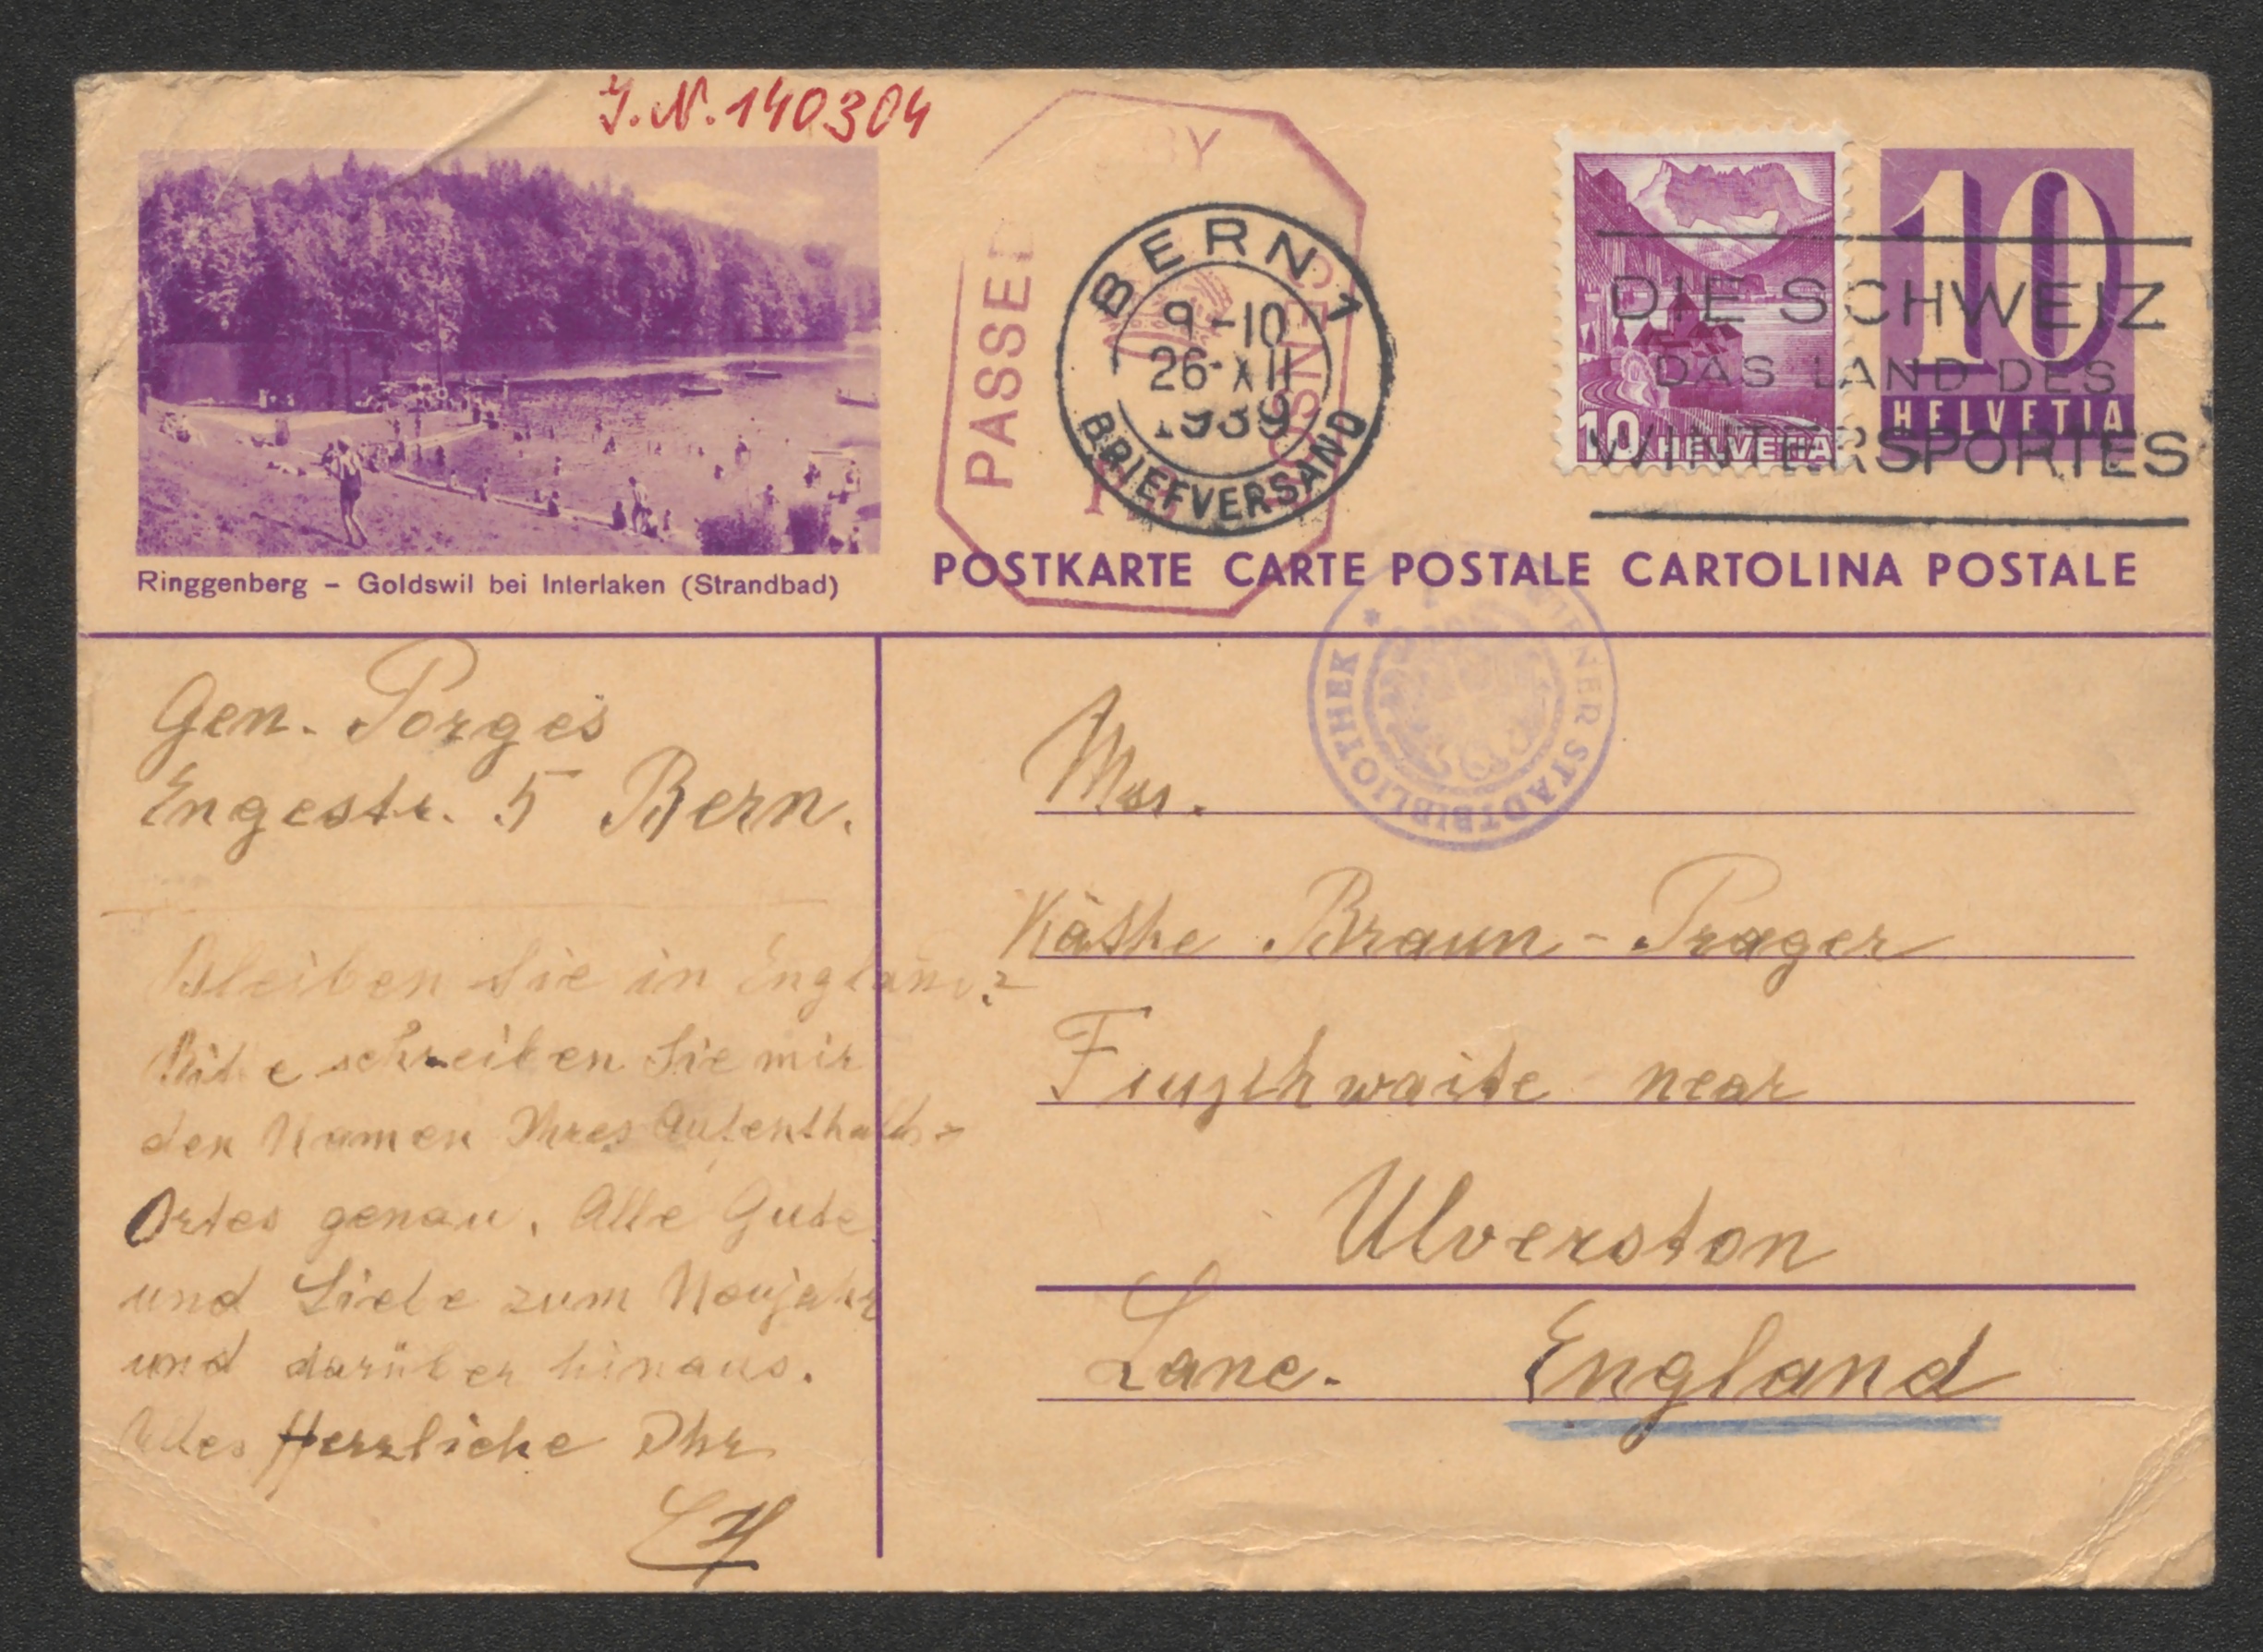 J.N. 140304
PASSED BY CENSOR
BERN 1
9-10
26-XII
1939
BRIEFVERSAND
10 HELVETIA
10
HELVETIA
DIE SCHWEIZ
DAS LAND DES
WINTERSPORTES
Ringgenberg – Goldswil bei Interlaken (Strandbad)
POSTKARTE CARTE POSTALE CARTOLINA POSTALE
WIENER STADTBIBLIOTHEK
Gen. Porges
Engestr. 5 Bern.
Bleiben Sie in England?
Bitte schreiben Sie mir
den Namen Ihres Aufenthalts-
Ortes genau. Alle Gute
und Liebe zum Neujahr
und darüber hinaus.
Alles Herzliche Ihr
Mrs.
Käthe Braun-Prager
Finsthwaite near
Ulverston
Lanc. England